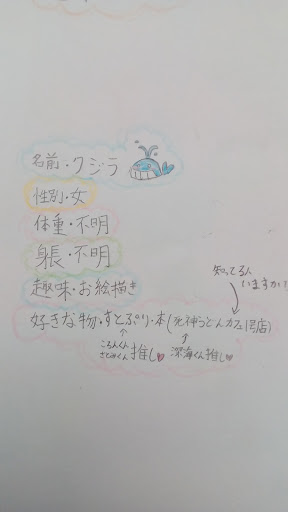 名前・クジラ
性別・女
体重・不明
身長・不明
趣味・お絵描き
知ってる人
いますか?
好きな物・すとぷり・本(死神うどんカフェ1号店)
ころんくん
さとみくん
推し♥
深海くん推し♥